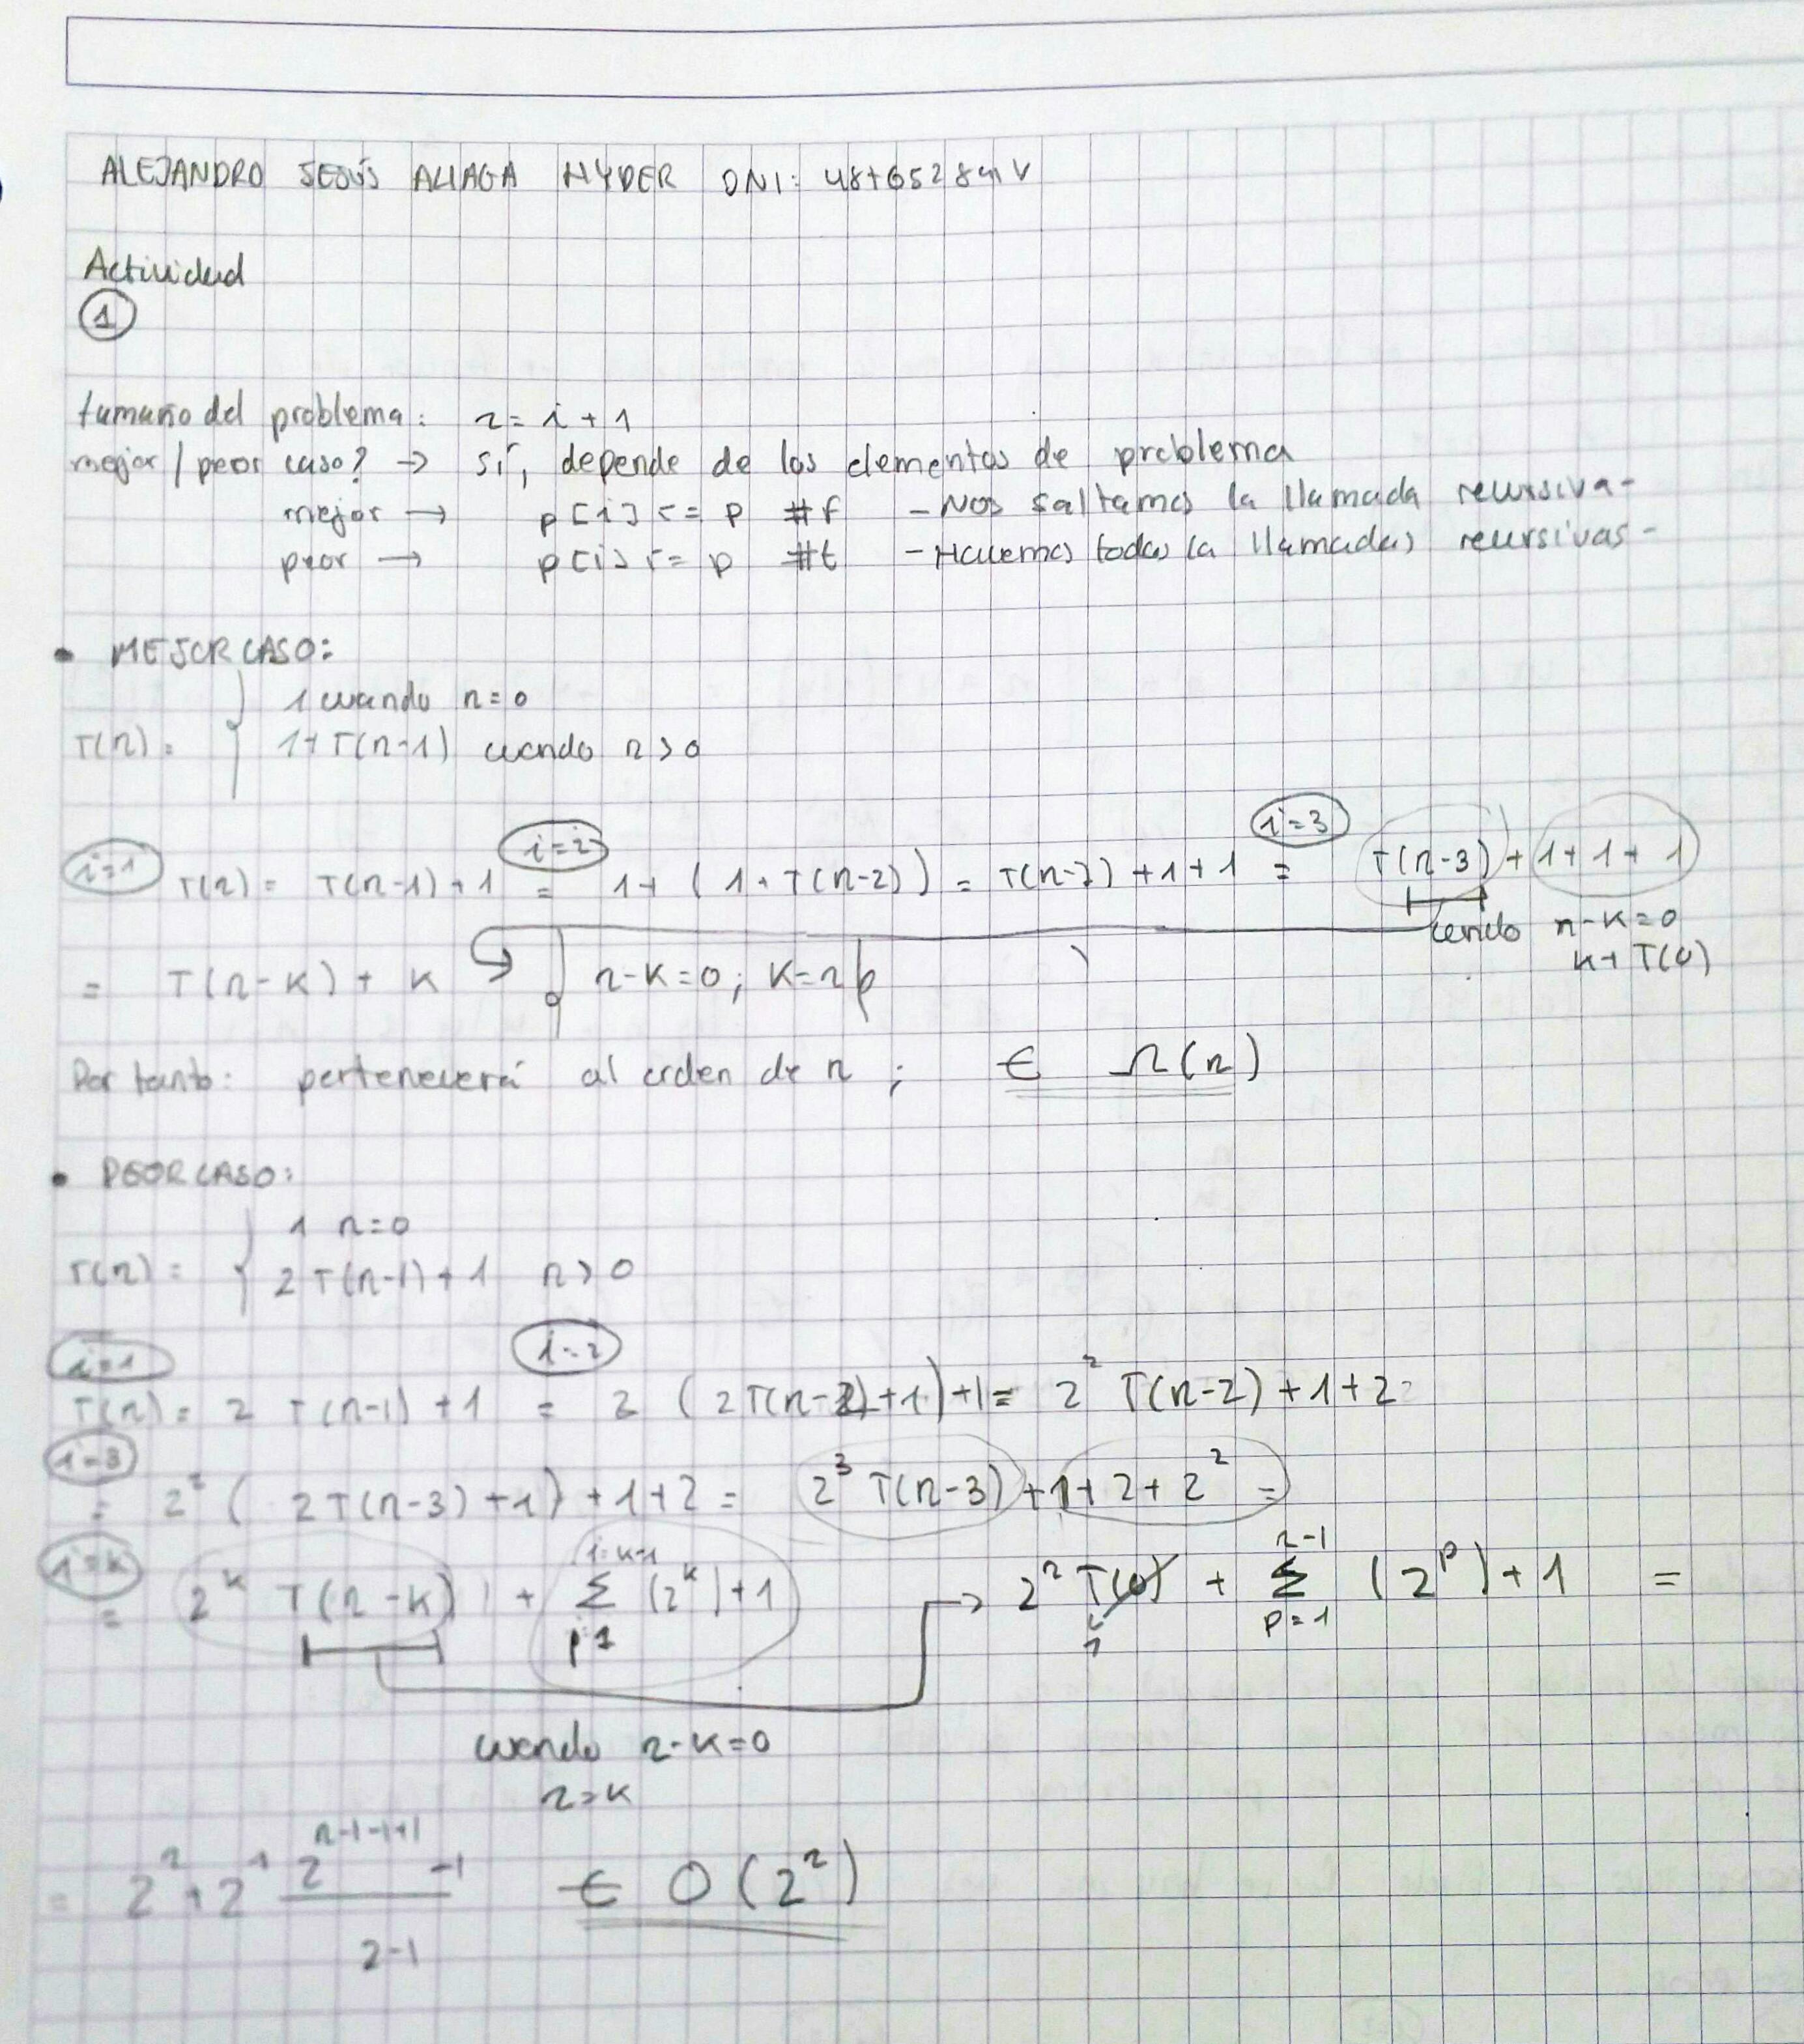 ALEJANDRO JESÚS ALIAGA HYDER DNI:
Actividad
1
tamaño del problema: n = i + 1
mejor / peor caso? → sí, depende de los elementos de problema
mejor → p[i] <= p #f - Nos saltamos la llamada recursiva -
peor → p[i] <= p #t - Hacemos todas la llamadas recursivas -
• MEJOR CASO:
1 cuando n = 0
T(n) = {
1 + T(n-1) cuando n > 0
i=1 i=2 i=3
T(n) = T(n-1) + 1 = 1 + (1 + T(n-2)) = T(n-2) + 1 + 1 = T(n-3) + 1 + 1 + 1
cuando n-k=0
k + T(0)
= T(n-k) + k n-k=0; k=n
Por tanto: pertenecerá al orden de n ; ∈ Ω(n)
• PEOR CASO:
1 n=0
T(n) = {
2T(n-1) + 1 n > 0
i=1 i=2
T(n) = 2 T(n-1) + 1 = 2 (2T(n-2)+1)+1 = 2² T(n-2) + 1 + 2 =
i=3
= 2² (2T(n-3) + 1) + 1 + 2 = 2³ T(n-3) + 1 + 2 + 2² =
i=k
= 2^k T(n-k) + Σ (2^k) + 1 → 2^n T(0) + Σ_{p=1}^{n-1} (2^p) + 1 =
1
cuando n-k=0
n=k
= 2^n + 2^1 (2^{n-1-1+1} - 1)/(2-1) ∈ O(2^n)